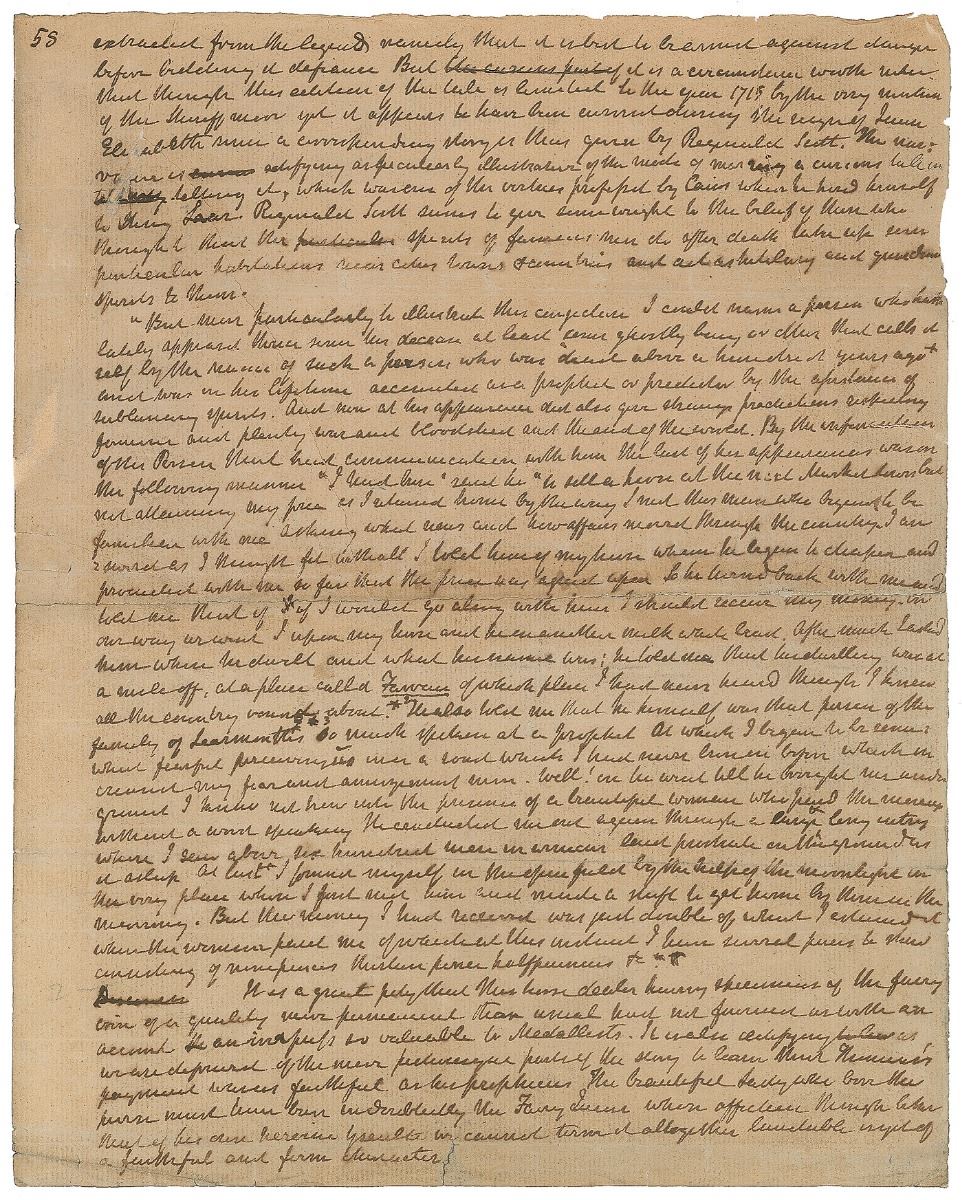 58
extracted from the legend namely that it is best to be armed against danger
before bidding it defiance But the curious part of it is a circumstance worth notice
that though this edition of the tale is limited to the year 1715 by the very mention
of the Sheriffmoor yet it appears to have been current during the reign of Queen
Elizabeth since a corresponding story is thus given by Reginald Scott. The nar:
rative is edifying as peculiarly illustrative of the mode of marring a curious tale in
telling it, which was one of the virtues professed by Caius when he hired himself
to King Lear. Reginald Scott seems to give some weight to the belief of those who
thought that the particular spirits of famous men do after death take up some
particular habitations near cities towns & countries and act as tutelary and guardian
spirits to them.
"But more particularly to illustrate this conjecture I could name a person who hath
lately appeared thrice since his decease at least some ghostly being or other that calls it
self by the name of such a person who was dead above a hundred years ago
and was in his lifetime accounted as a prophet or predicter by the assistance of
sublunary spirits. And now at his appearance did also give strange predictions respecting
famine and plenty war and bloodshed and the end of the world. By the information
of the Person that had communication with him the last of his appearances was in
the following manner "I had been" said he "to sell a horse at the next Market town but
not attaining my price as I returned home by the way I met this man who began to be
familiar with me asking what news and how affairs moved through the country. I an
swered as I thought fit withall I told him of my horse whom he began to cheapen and
proceeded with me so far that the price was agreed upon So he turned back with me and
told me that if if I would go along with him I should receive my money. On
our way we went I upon my horse and he on another milk white beast. After much I asked
him where he dwelt and what his name was; he told me that his dwelling was at
a mile off, at a place called Farran of which place I had never heard though I knew
all the country round about. He also told me that he himself was that person of the
family of Learmonths so much spoken of as a prophet At which I began to be some:
what fearful perceiving us on a road which I had never been on before which in
creased my fear and amazement more. Well! on he went till he brought me under
ground I know not how into the presence of a beautiful woman who paid the money
without a word speaking He conducted me out again through a large & long entry
where I saw above six hundred men in armour laid prostrate on the ground as
if asleep At last I found myself in the open field by the help of the moonlight in
the very place where I first met him and made a shift to get home by three in the
morning. But the money I had received was just double of what I esteemed it
when the woman paid me of which at this instant I have several pieces to shew
consisting of ninepences thirteen pence halfpennies &c"
It is a great pity that this horse dealer having specimens of the fairy
coin of a quality more permanent than usual had not favoured us with an
account of an impress so valuable to Medallists. It is also edifying as
we are deprived of the more picturesque parts of the story to learn that Thomas's
payment was as faithful as his prophecies The beautiful lady who bore the
purse must have been undoubtedly the Fairy Queen whose affection though like
that of his own heroine Yseult we cannot term it altogether laudable is yet of
a faithful and firm character